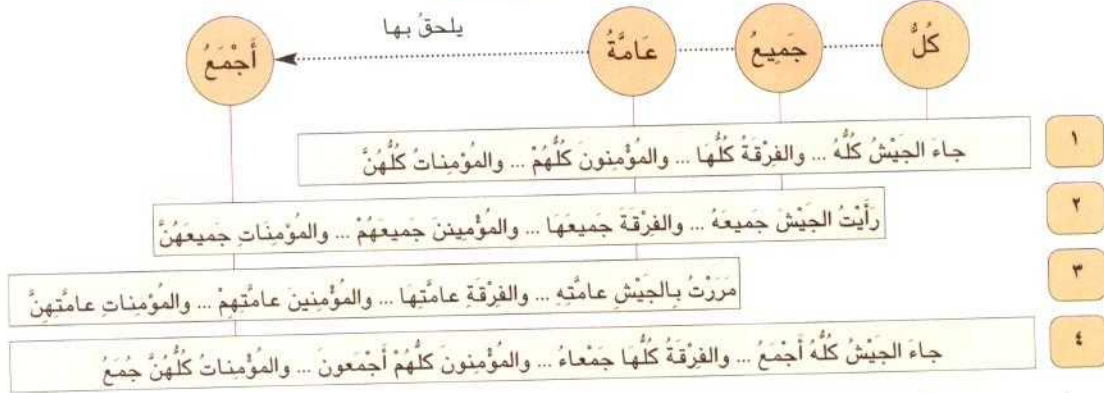 كُلُّ جَمِيعُ عَامَّةُ يلحقُ بها أَجْمَعُ
١ جاءَ الجَيْشُ كُلُّهُ ... والفِرْقَةُ كُلُّهَا ... والمُؤْمِنونَ كُلُّهُمْ ... والمُؤمِناتُ كُلُّهُنَّ
٢ رَأَيْتُ الجَيْشَ جَميعَهُ ... والفِرْقَةَ جَميعَهَا ... والمُؤْمِنينَ جَميعَهُمْ ... والمُؤمِنَاتِ جَميعَهُنَّ
٣ مَرَرْتُ بِالجَيْشِ عامَّتِهِ ... والفِرْقَةِ عامَّتِهَا ... والمُؤْمِنينَ عامَّتِهِمْ ... والمُؤمِناتِ عامَّتِهِنَّ
٤ جاءَ الجَيْشُ كُلُّهُ أَجْمَعُ ... والفِرْقَةُ كُلُّهَا جَمْعاءُ ... والمُؤْمِنونَ كُلُّهُمْ أَجْمَعونَ ... والمُؤمِناتُ كُلُّهُنَّ جُمَعُ